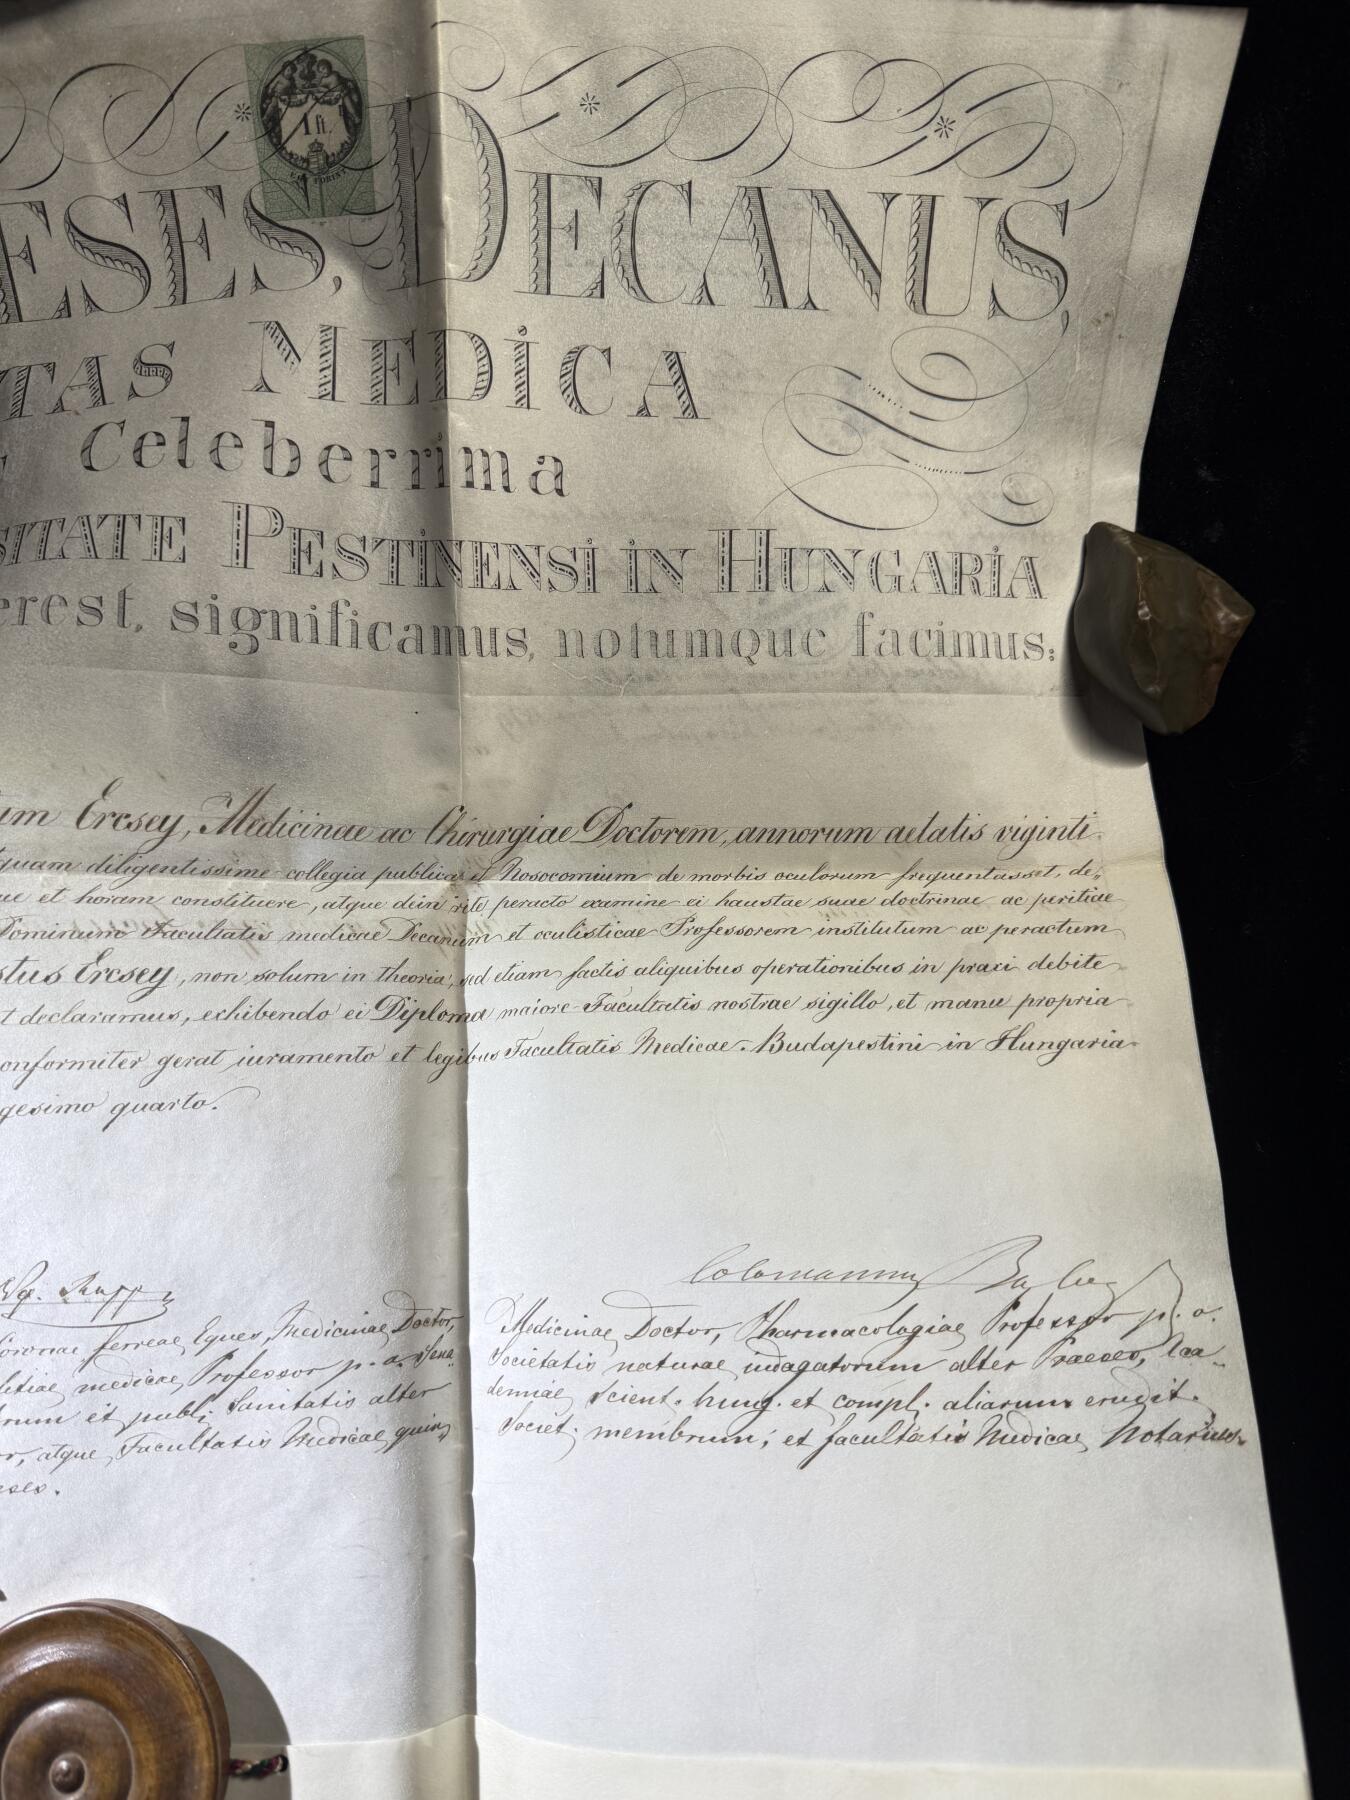 1 ft.
EGY FORINT
ESES, DECANUS,
TAS MEDICA
Celeberrima
SITATE PESTINENSI IN HUNGARIA
erest, significamus, notumque facimus:
um Ercsey, Medicinae ac Chirurgiae Doctorem, annorum aetatis viginti
quam diligentissime collegia publica et Nosocomium de morbis oculorum frequentasset, de„
ue et horam constituere, atque dein rite peracto examine ei haustae suae doctrinae ac peritiae
Dominum Facultatis medicae Decanum et oculisticae Professorem institutum ac peractum
stus Ercsey, non solum in theoria, sed etiam factis aliquibus operationibus in praxi debite
t declaramus, exhibendo ei Diploma maiore Facultatis nostrae sigillo, et manu propria
onformiter gerat iuramento et legibus Facultatis Medicae. Budapestini in Hungaria
gesimo quarto.
Rupp
Coronae ferreae Eques, Medicinae Doctor,
litiae medicae Professor p. o. Sena„
rum et publ. Sanitatis alter
or, atque Facultatis Medicae quin„
ses.
Colomannus Balogh
Medicinae Doctor, Pharmacologiae Professor p. o.
Societatis naturae indagatorum alter Praeses, Aca„
demiae Scient. hung. et compl. aliarum erudit.
Societ. membrum; et facultatis Medicae Notarius.